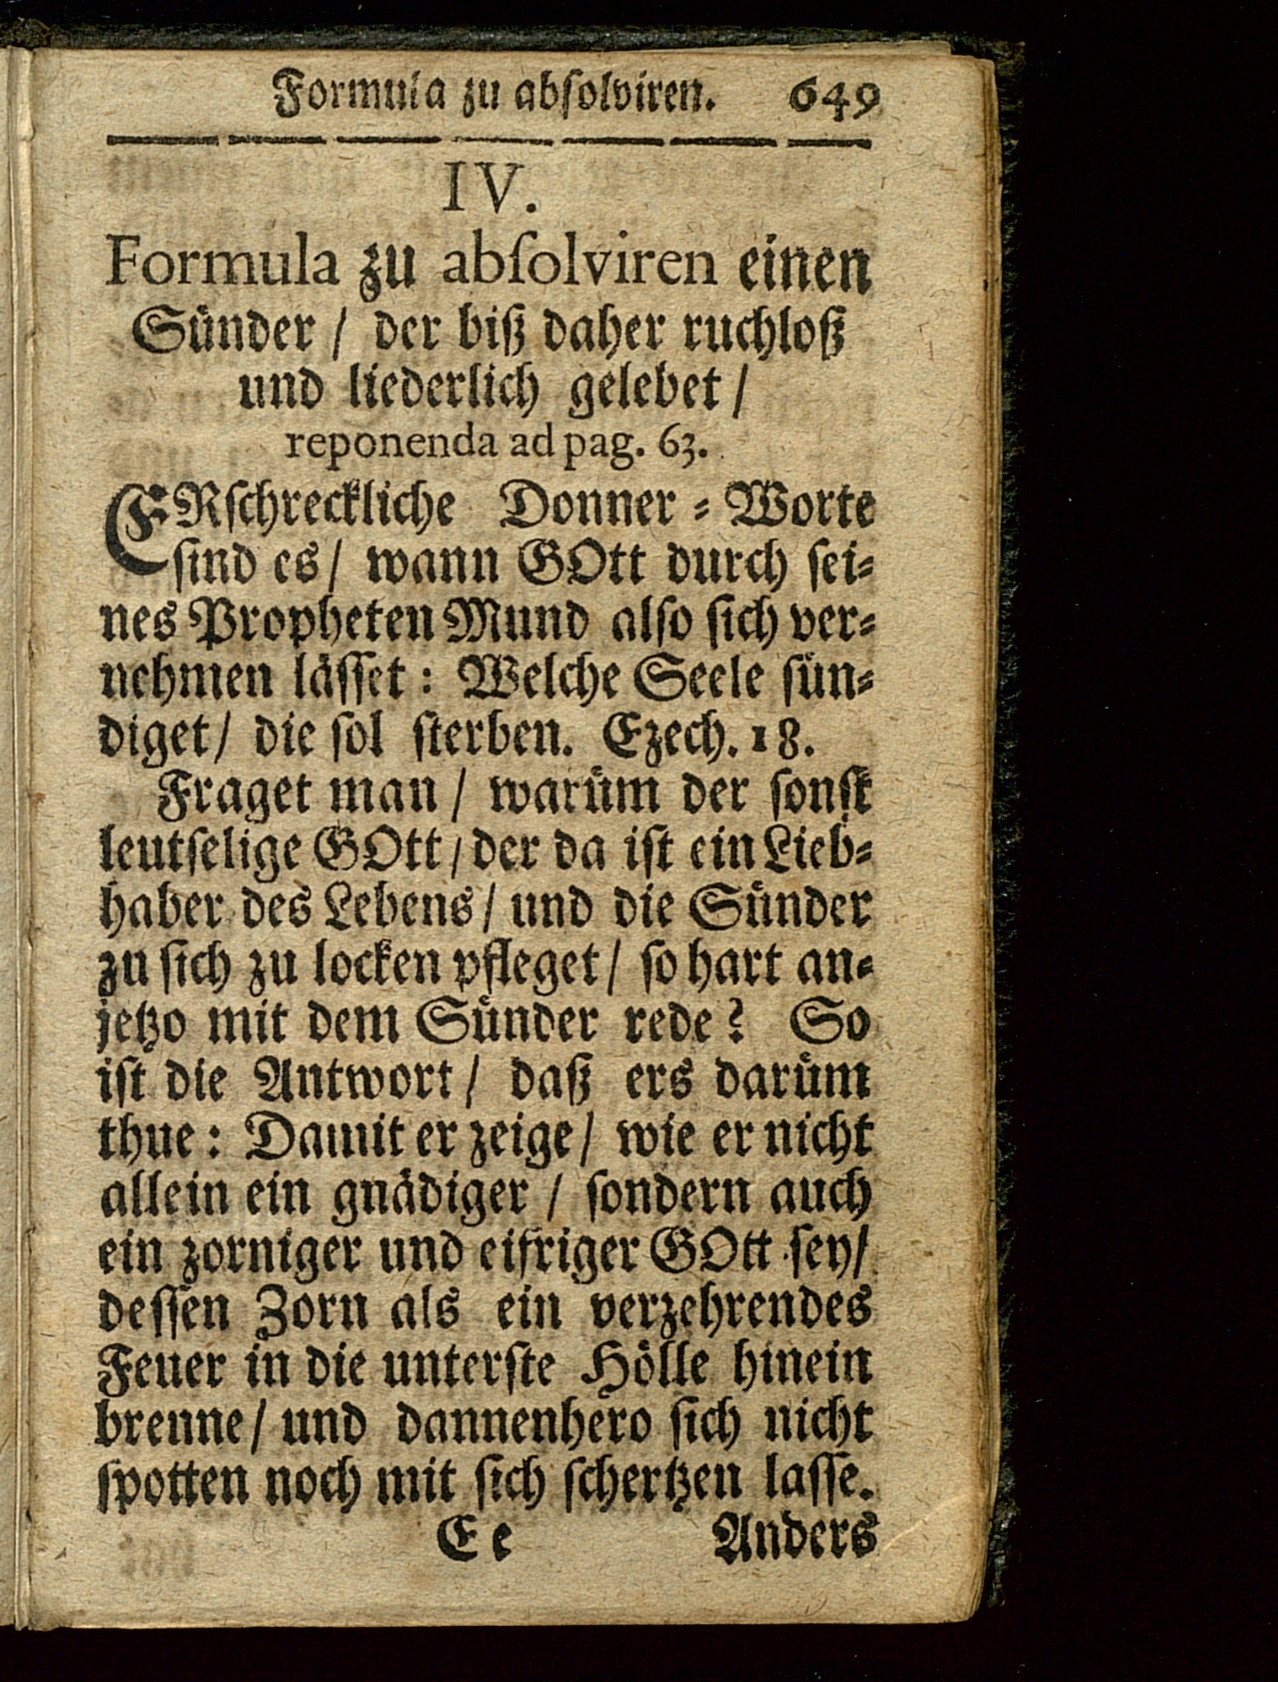 Formula zu absolviren. 649
IV.
Formula zu absolviren einen
Sünder / der biß daher ruchloß
und liederlich gelebet /
reponenda ad pag. 63.
ERschreckliche Donner-Worte
sind es / wann GOtt durch sei-
nes Propheten Mund also sich ver-
nehmen lässet: Welche Seele sün-
diget / die sol sterben. Ezech. 18.
Fraget man / warüm der sonst
leutselige GOtt / der da ist ein Lieb-
haber des Lebens / und die Sünder
zu sich zu locken pfleget / so hart an-
jetzo mit dem Sünder rede? So
ist die Antwort / daß ers darüm
thue: Damit er zeige / wie er nicht
allein ein gnädiger / sondern auch
ein zorniger und eifriger GOtt sey /
dessen Zorn als ein verzehrendes
Feuer in die unterste Hölle hinein
brenne / und dannenhero sich nicht
spotten noch mit sich schertzen lasse.
Ee Anders